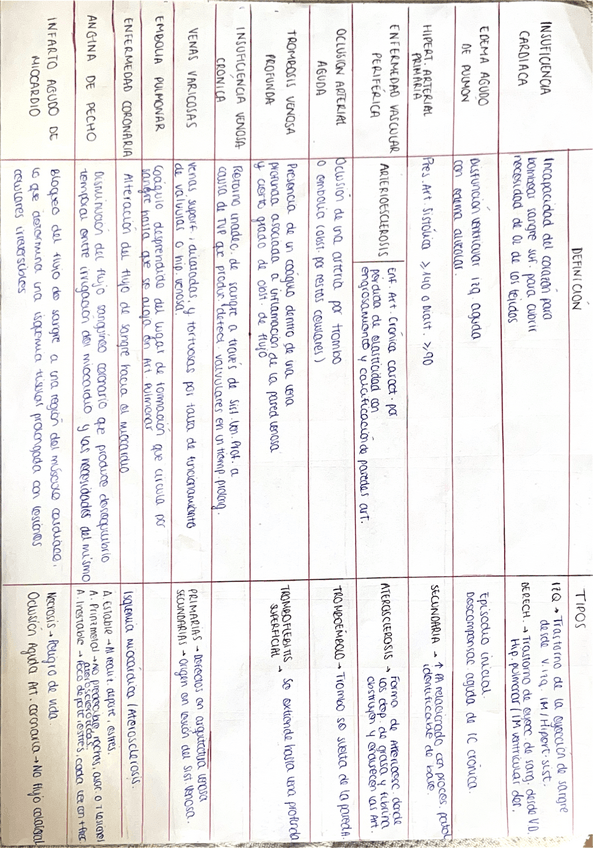 DEFINICIÓN
TIPOS
INSUFICIENCIA
CARDIACA
Incapacidad del corazón para
bombear sangre suf. para cubrir
necesidad de O2 de los tejidos
IZQ → Trastorno de la eyección de sangre
desde V. izq. IM/Hipert. sist.
DERECH. → Trastorno de eyecc de sang. desde VD.
Hip. pulmonar/IM ventricular der.
EDEMA AGUDO
DE PULMÓN
Disfunción ventricular izq aguda
con edema alveolar.
Episodio inicial
Descompensac aguda de IC crónica.
HIPERT. ARTERIAL
PRIMARIA
Pres. Art. Sistólica ≥ 140 o Diast. ≥ 90
SECUNDARIA → ↑ PA relacionado con proces. patol
identificable de base.
ENFERMEDAD VASCULAR
PERIFÉRICA
ARTERIOESCLEROSIS
Enf. Art. Crónica caract. por
pérdida de elasticidad con
engrosamiento y calcificación de paredes art.
ATEROSCLEROSIS → Forma de arterioesc. donde
los dep. de grasa y fibrina
obstruyen y endurecen las Art.
OCLUSIÓN ARTERIAL
AGUDA
Oclusión de una arteria por trombo
o embolia (obst. por restos celulares)
TROMBOÉMBOLO → Trombo se suelta de la pared
TROMBOSIS VENOSA
PROFUNDA
Presencia de un coágulo dentro de una vena
profunda asociada a inflamación de la pared venosa
y cierto grado de obst. de flujo
TROMBOFLEBITIS → Se extiende hacia vena profunda
SUPERFICIAL
INSUFICIENCIA VENOSA
CRÓNICA
Retorno inadec. de sangre a través de Sist. Ven. Prof. a
causa de TVP que produc. defect. valvulares en un tiemp. prolong.
VENAS VARICOSAS
Venas superf., dilatadas, y tortuosas por falta de funcionamiento
de válvulas o hip. venosa
PRIMARIAS → Defectos en arquitectura venosa
SECUNDARIAS → Origen en lesión del sist. Venoso.
EMBOLIA PULMONAR
Coágulo desprendido del lugar de formación que circula por
sangre hasta que se aloja en Art. Pulmonar
ENFERMEDAD CORONARIA
Alteración del flujo de sangre hacia el miocardio
Isquemia miocárdica / Aterosclerosis.
ANGINA DE PECHO
Disminución del flujo sanguíneo coronario que produce desequilibrio
temporal entre irrigación del miocardio y las necesidades del mismo
A. Estable → Al realiz. deporte, estrés.
A. Inestable → Poco deporte, estrés, cada vez con + frec
INFARTO AGUDO DE
MIOCARDIO
Bloqueo del flujo de sangre a una región del músculo cardiaco,
lo que determina una isquemia tisular prolongada con lesiones
celulares irreversibles
Necrosis → Peligro de vida
Oclusión Aguda Art. coronaria → No flujo colateral